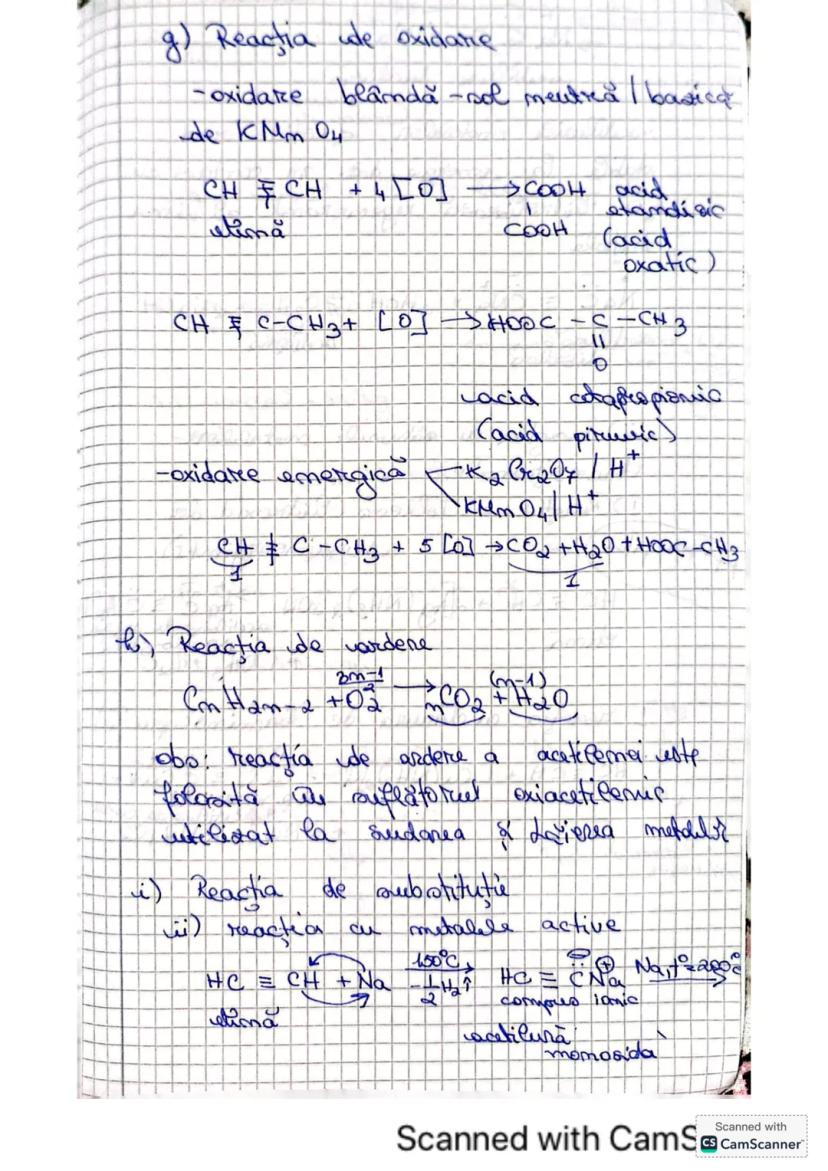 g) Reacția de oxidare
-oxidare blândă - sol neutră / bazică
de KMnO4
CH ≡ CH + 4 [O] → COOH acid
| etandioic
etină COOH (acid
oxalic)
CH ≡ C-CH3 + [O] → HOOC - C - CH3
||
O
acid cetopropionic
(acid piruvic)
-oxidare energică K2Cr2O7 / H+
KMnO4 / H+
CH ≡ C - CH3 + 5 [O] → CO2 + H2O + HOOC-CH3
1 1
h) Reacția de ardere
CnH2n-2 + 3n-1/2 O2 → nCO2 + (n-1) H2O
obs: reacția de ardere a acetilenei este
folosită cu suflătorul oxiacetilenic
utilizat la sudarea și tăierea metalelor
i) Reacția de substituție
ii) reacția cu metalele active
HC ≡ CH + Na 150°C, -1/2 H2↑ → HC ≡ C⊖ Na⊕ Na, t°=220°C →
compus ionic
etină
acetilură
monosodă